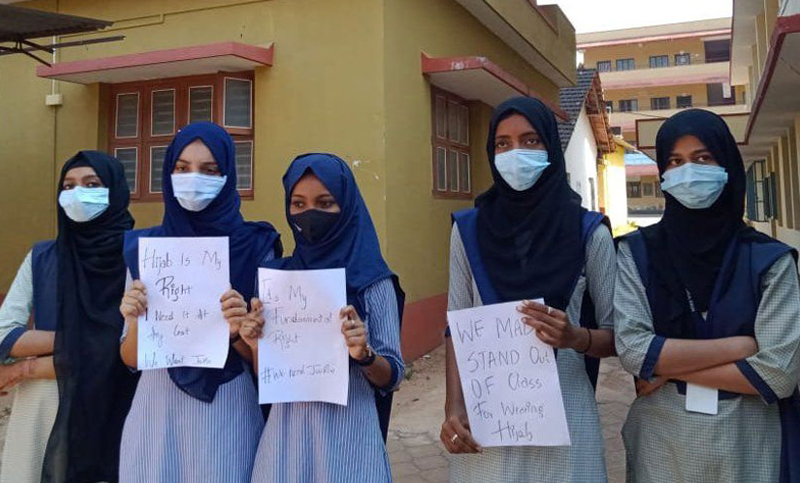 Hijab is My
Right
I Need it At
Any Cost
We Want Justice
Is My
Fundamental
Right
#We Need Justice
WE MADE
STAND OUT
OF Class
For Wearing
Hijab